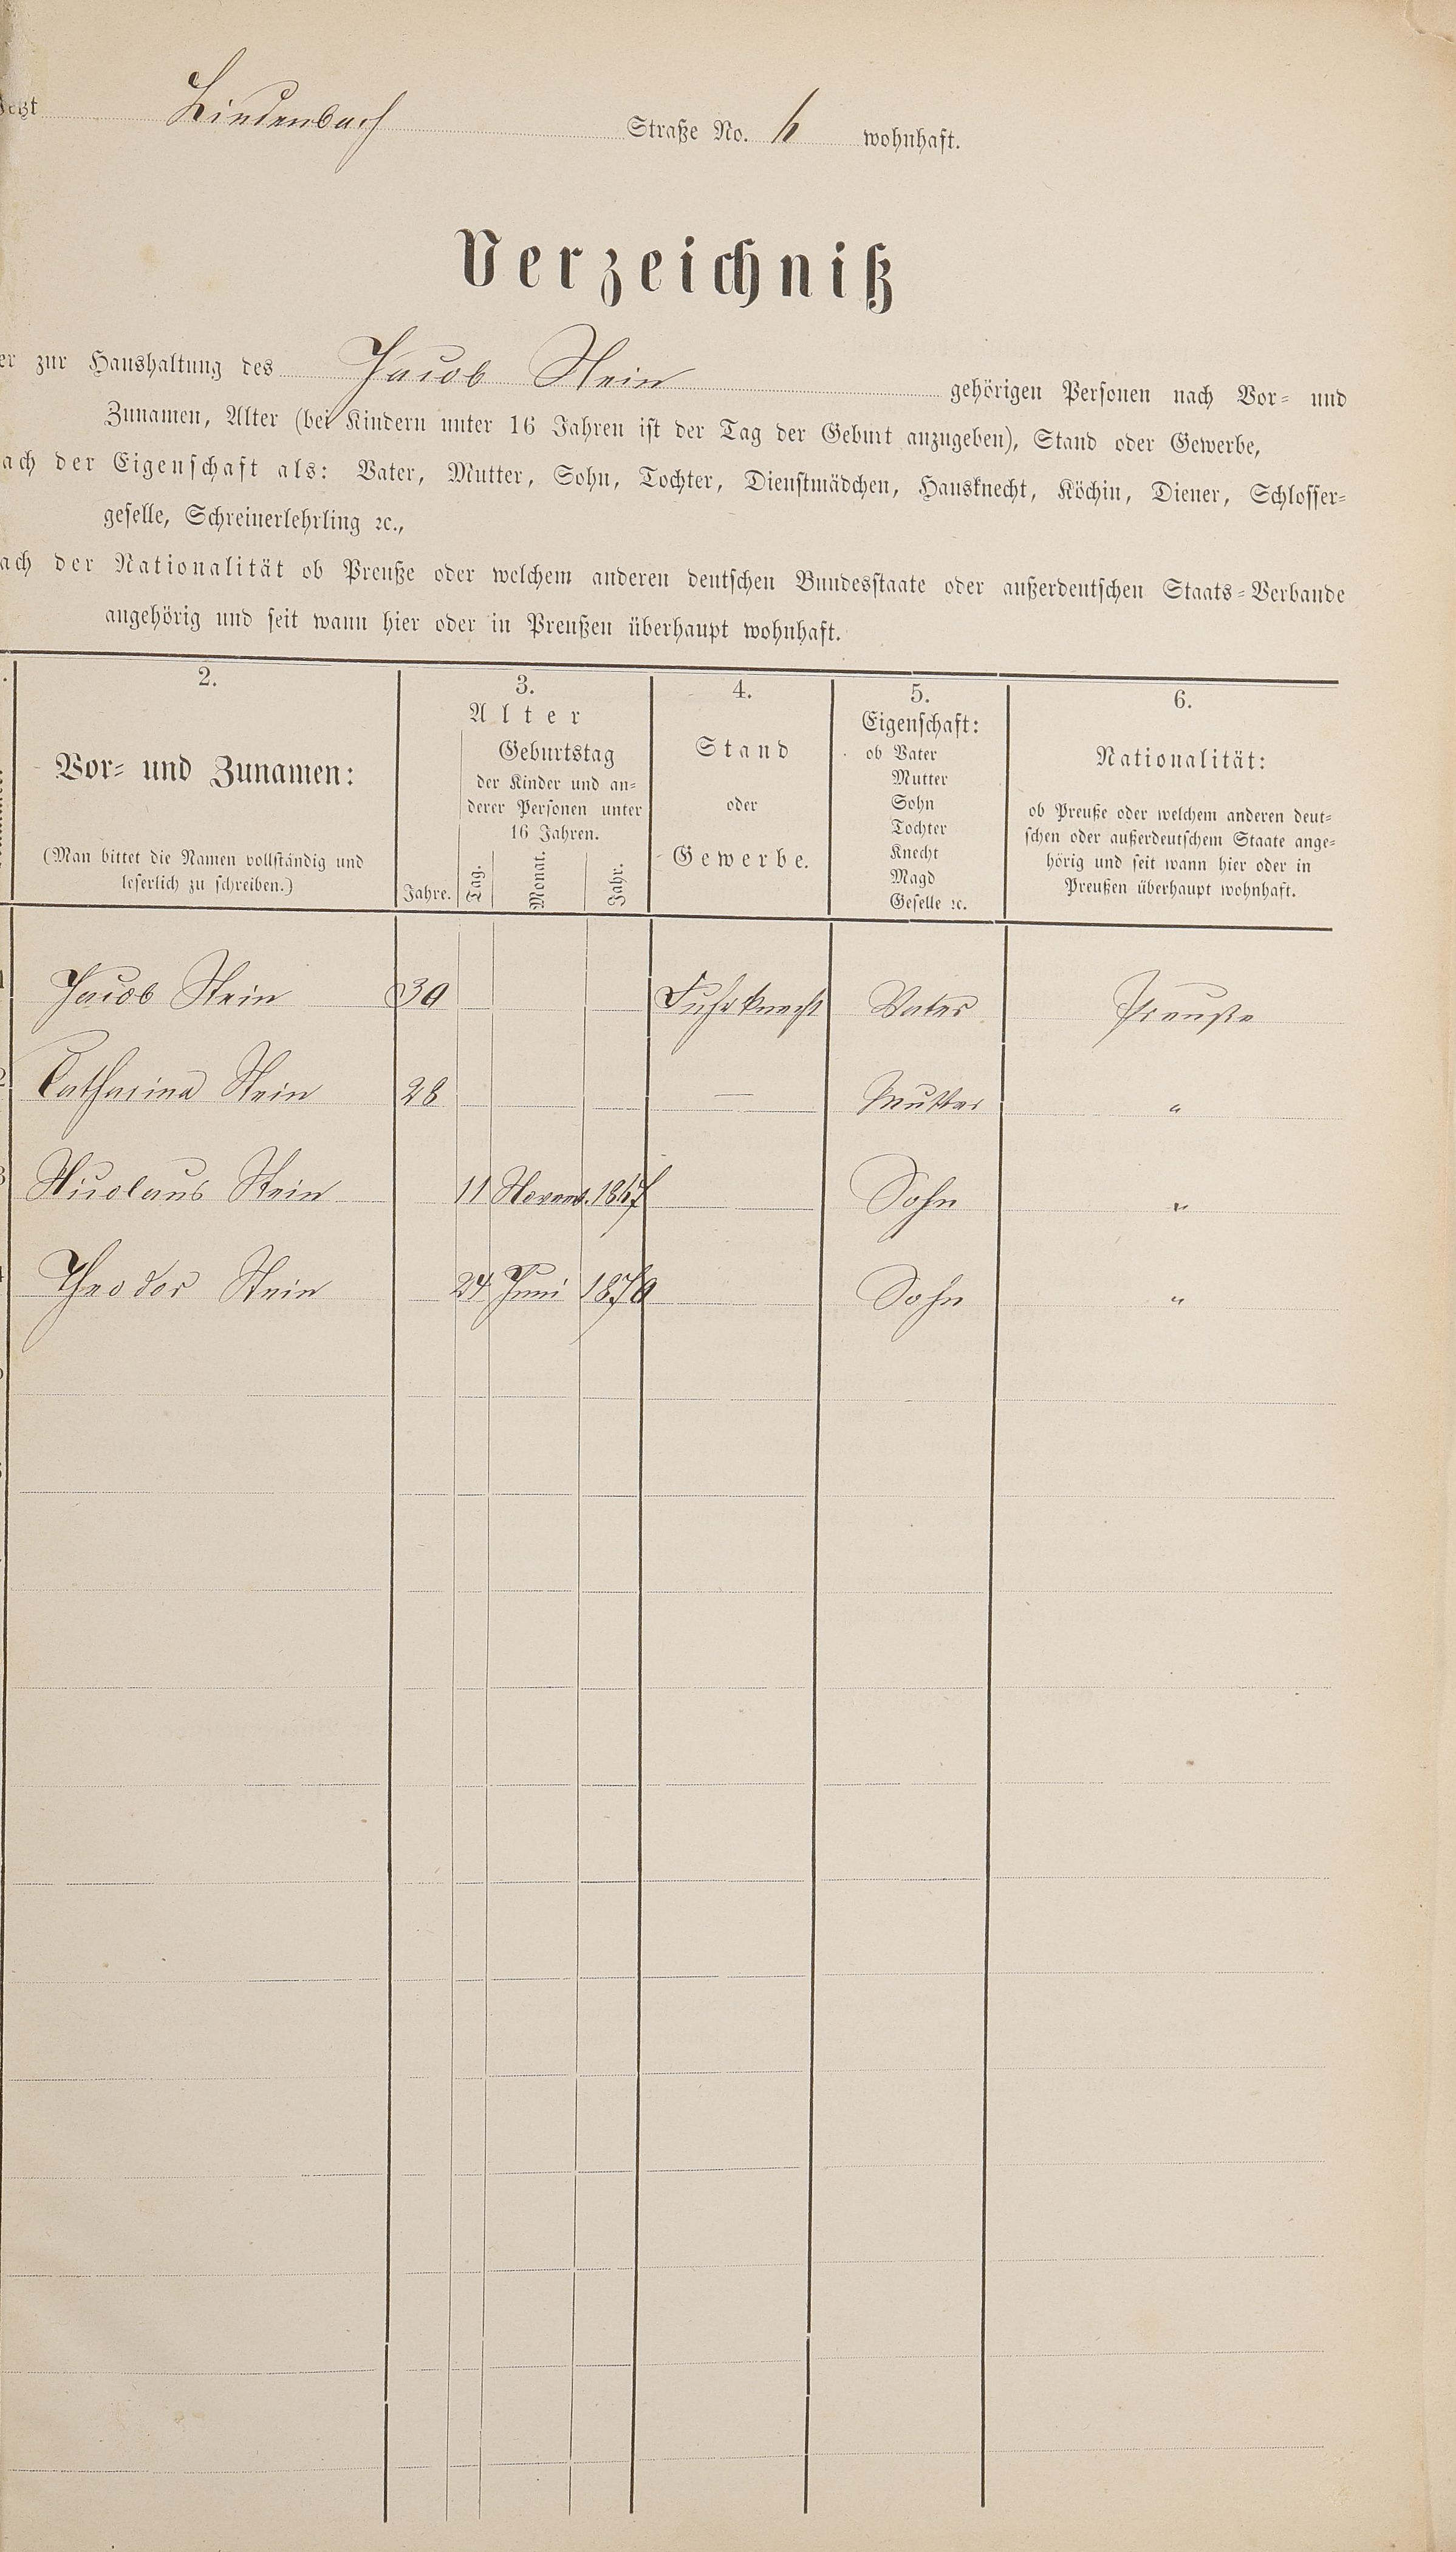 Jetzt Lindenbach Straße No. 6 wohnhaft.
Verzeichniß
er zur Haushaltung des Jacob Stein gehörigen Personen nach Vor- und
Zunamen, Alter (bei Kindern unter 16 Jahren ist der Tag der Geburt anzugeben), Stand oder Gewerbe,
ach der Eigenschaft als: Vater, Mutter, Sohn, Tochter, Dienstmädchen, Hausknecht, Köchin, Diener, Schlosser-
geselle, Schreinerlehrling ꝛc.,
ach der Nationalität ob Preuße oder welchem anderen deutschen Bundesstaate oder außerdeutschen Staats-Verbande
angehörig und seit wann hier oder in Preußen überhaupt wohnhaft.
2.
Vor- und Zunamen:
(Man bittet die Namen vollständig und
leserlich zu schreiben.)
3.
Alter
Geburtstag
der Kinder und an-
derer Personen unter
16 Jahren.
Jahre. Tag. Monat. Jahr.
4.
Stand
oder
Gewerbe.
5.
Eigenschaft:
ob Vater
Mutter
Sohn
Tochter
Knecht
Magd
Geselle ꝛc.
6.
Nationalität:
ob Preuße oder welchem anderen deut-
schen oder außerdeutschem Staate ange-
hörig und seit wann hier oder in
Preußen überhaupt wohnhaft.
Jacob Stein 30 Fuhrknecht Vater Preuße
Catharina Stein 28 — Mutter "
Nicolaus Stein 11 Novemb. 1867 Sohn "
Theodor Stein 24 Juni 1870 Sohn "